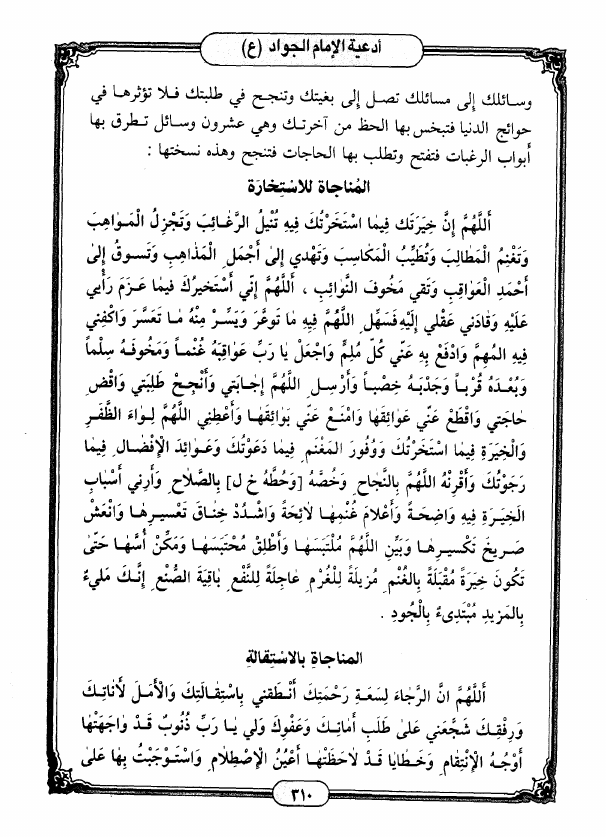 أدعية الإمام الجواد (ع)
وسائلك إلى مسائلك تصل إلى بغيتك وتنجح في طلبتك فلا تؤثرها في
حوائج الدنيا فتبخس بها الحظ من آخرتك وهي عشرون وسائل تطرق بها
أبواب الرغبات فتفتح وتطلب بها الحاجات فتنجح وهذه نسختها :
المُناجاة للاسْتِخارَة
أَللَّهُمَّ إِنَّ خِيَرَتَكَ فِيمَا اسْتَخَرْتُكَ فِيهِ تُنْيلُ الرَّغائِبَ وَتَجْزِلُ الْمَوٰاهِبَ
وَتَغْنِمُ الْمَطٰالِبَ وَتُطَيِّبُ الْمَكٰاسِبَ وَتَهْدي إِلىٰ أَجْمَلِ الْمَذٰاهِبِ وَتَسوقُ إِلىٰ
أَحْمَدِ الْعَوٰاقِبِ وَتَقي مَخُوفَ النَّوٰائِبِ ، أَللَّهُمَّ إِنّي أَسْتَخيرُكَ فيمٰا عَزَمَ رَأْيي
عَلَيْهِ وَقٰادَني عَقْلي إِلَيْهِ فَسَهِّلِ اللَّهُمَّ فِيهِ مٰا تَوَعَّرَ وَيَسِّرْ مِنْهُ مٰا تَعَسَّرَ وَاكْفِني
فِيهِ المُهِمَّ وَادْفَعْ بِهِ عَنّي كُلَّ مُلِمٍّ وَاجْعَلْ يٰا رَبِّ عَوٰاقِبَهُ غُنْماً وَمَخُوفَهُ سِلْماً
وَبُعْدَهُ قُرْباً وَجَدْبَهُ خِصْباً وَأَرْسِلِ اللَّهُمَّ إِجٰابَتي وَأَنْجِحْ طَلِبَتي وَاقْضِ
حٰاجَتي وَاقْطَعْ عَنّي عَوٰائِقَهٰا وَامْنَعْ عَنّي بَوٰائِقَهٰا وَأَعْطِني اللَّهُمَّ لِوٰاءَ الظَّفَرِ
وَالْخِيَرَةِ فِيمَا اسْتَخَرْتُكَ وَوُفُورَ المَغْنَمِ فِيمٰا دَعَوْتُكَ وَعَوٰائِدَ الْإِفْضٰالِ فِيمٰا
رَجَوْتُكَ وَأَقْرِنْهُ اللَّهُمَّ بِالنَّجٰاحِ وَخُصَّهُ [وَحُطَّهُ خ ل] بِالصَّلٰاحِ وَأَرِني أَسْبٰابَ
الْخِيَرَةِ فِيهِ وَاضِحَةً وَأَعْلٰامَ غُنْمِهٰا لٰائِحَةً وَاشْدُدْ خِنٰاقَ تَعْسيرِهٰا وَانْعَشْ
صَريخَ تَكْسيرِهٰا وَبَيِّنِ اللَّهُمَّ مُلْتَبَسَهٰا وَأَطْلِقْ مُحْتَبَسَهٰا وَمَكِّنْ أُسَّهٰا حَتّىٰ
تَكُونَ خِيَرَةً مُقْبِلَةً بِالغُنْمِ مُزيلَةً لِلْغُرْمِ عٰاجِلَةً لِلنَّفْعِ بٰاقِيَةَ الصُّنْعِ إِنَّكَ مَليءٌ
بِالمَزيدِ مُبْتَدِىءٌ بِالْجُودِ .
المناجاةِ بالاسْتِقالةِ
أَللَّهُمَّ انَّ الرَّجٰاءَ لِسَعَةِ رَحْمَتِكَ أَنْطَقَني بِاسْتِقٰالَتِكَ وَالْأَمَلَ لَأنٰاتِكَ
وَرِفْقِكَ شَجَّعَني عَلىٰ طَلَبِ أَمٰانِكَ وَعَفْوِكَ وَلي يٰا رَبِّ ذُنُوبٌ قَدْ وَاجَهَتْهٰا
أَوْجُهُ الْإِنْتِقٰامِ وَخَطٰايٰا قَدْ لٰاحَظَتْهٰا أَعْيُنُ الْإِصْطِلٰامِ وَاسْتَوْجَبْتُ بِهٰا عَلىٰ
٣١٠